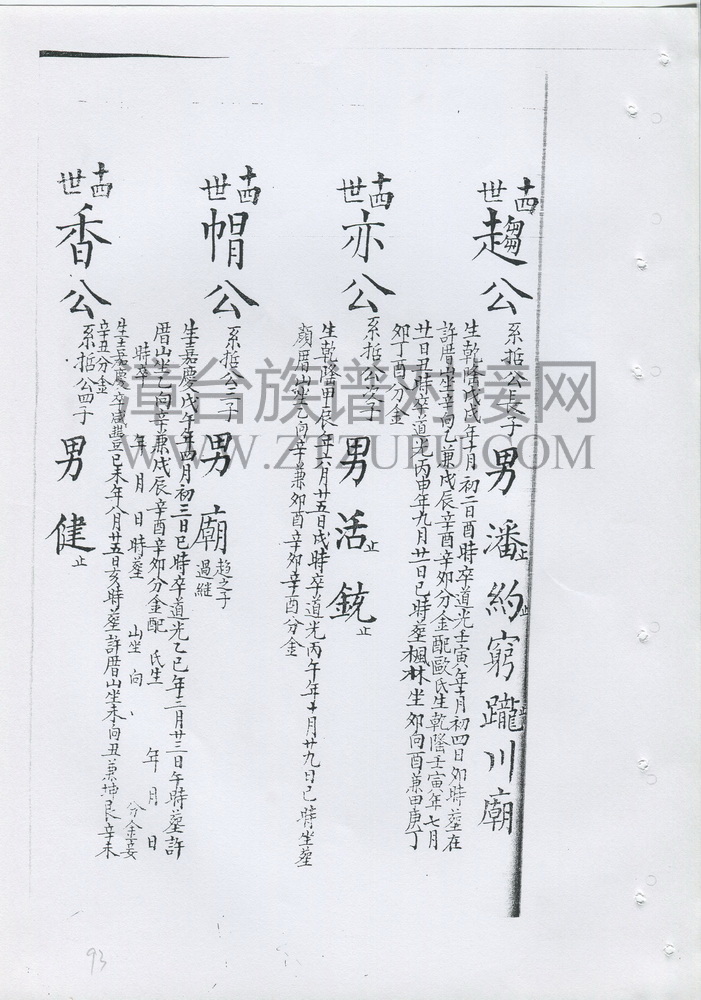 十四世 趨公
系㧞公長子 男 潘止 約止 窮 躘止 川 廟
生乾隆戊戌年十月初二日酉時卒道光壬寅年十月初四日卯時塟在
許厝山坐辛向乙兼戊辰辛酉辛卯分金配歐氏生乾隆壬寅年七月
廿日丑時卒道光丙申年九月廿一日巳時塟楓林坐卯向酉兼甲庚丁
卯丁酉分金
十四世 亦公
系㧞公次子 男 活止 銃止
生乾隆甲辰年六月廿五日戌時卒道光丙午年十月廿九日巳時坐塟
顏厝山坐乙向辛兼卯酉辛卯辛酉分金
十四世 帽公
系㧞公三子 男 廟 趨之子過継
生嘉慶戊午年四月初三日巳時卒道光乙巳年三月廿三日午時塟許
厝山坐乙向辛兼戊辰辛酉辛卯分金配 氏生 年 月 日
時卒 年 月 日時塟 山坐 向 分金妾
十四世 香公
系㧞公四子 男 健止
生嘉慶 卒咸豐己未年八月廿五日亥時塟許厝山坐未向丑兼坤艮辛未
辛丑分金
漳台族谱对接网
WWW.ZTZUPU.COM
93